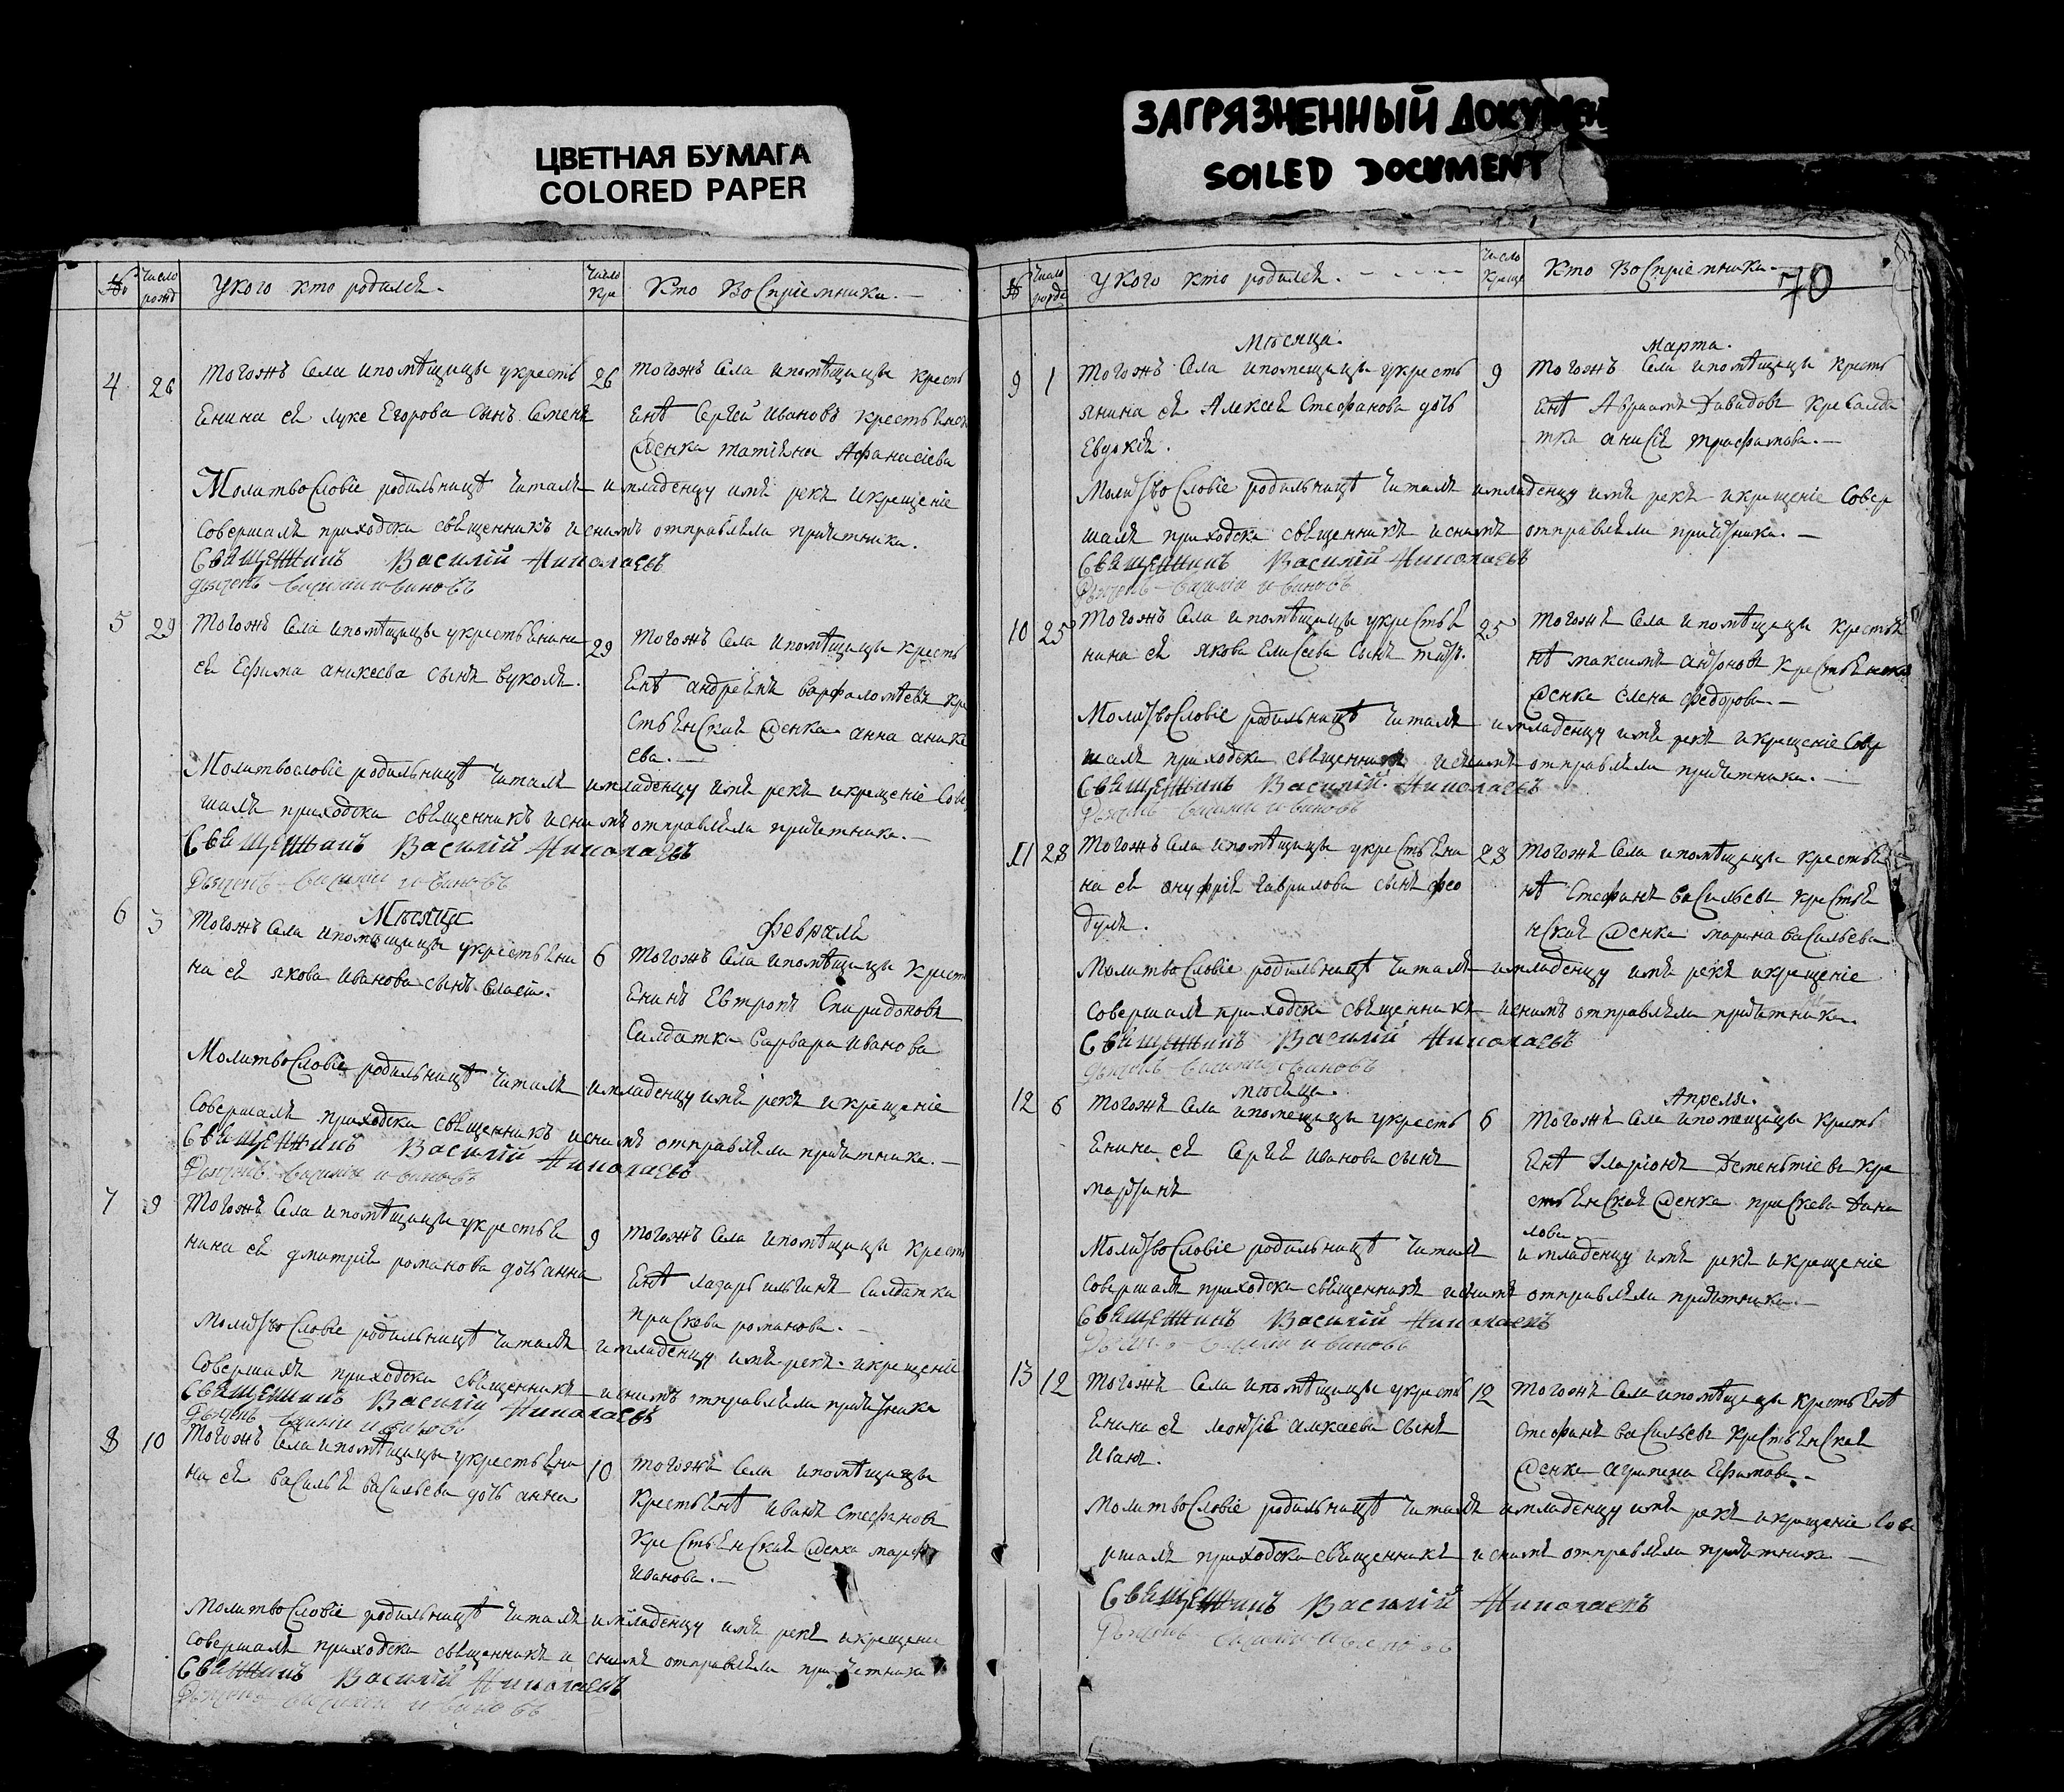 ЦВЕТНАЯ БУМАГА
COLORED PAPER
ЗАГРЯЗНЕННЫЙ ДОКУМЕН
SOILED DOCUMENT
№ число рожд
У кого кто родилсѧ.
число кре
Кто Восприемники.
4 26
тогожъ села ипомѣщицы укресть
ѧнина сѧ луке Егорова сынъ семенъ
26
тогожъ села ипомѣщицы кресть
ѧнъ Сергей Ивановъ крестьѧнск
женка татиѧна Афанасиева
Молитвословіе родильницѣ читалъ имладенцу имѧ рекъ икрещеніе
совершалъ приходски свѧщенникъ иснимъ отправлѧли причетники.
Свѧщенникъ Василій Николаевъ
дьячекъ василий ивановъ
5 29
тогожъ села ипомѣщицы укрестьѧнина
сѧ Ефима аникеева сынъ вуколъ.
29
тогожъ села ипомѣщицы кресть
ѧнъ андреѧнъ варфоломѣевъ кре
стьѧнскаѧ женка анна аники
ева.
Молитвословіе родильницѣ читалъ имладенцу имѧ рекъ икрещеніе сове
шалъ приходски свѧщенникъ иснимъ отправлѧли причетники.
Свѧщенникъ Василій Николаевъ
Дьячекъ василий ивановъ
Мѣсяца
февралѧ
6 3
тогожъ села ипомѣщицы укрестьѧни
на сѧ якова иванова сынъ власей.
6
тогожъ села ипомѣщицы кресть
ѧнинъ Евтропъ Спиридоновъ
салдатка варвара иванова
Молитвословіе родильницѣ читалъ имладенцу имѧ рекъ икрещеніе
совершалъ приходски свѧщенникъ иснимъ отправлѧли причетники.
Свѧщенникъ Василій Николаевъ
Дьячекъ василий ивановъ
7 9
тогожъ села ипомѣщицы укрестьѧ
нина сѧ дмитриѧ романова дочь анна
9
тогожъ села ипомѣщицы кресть
ѧнъ лазарь ильинъ салдатка
прасковѧ романова.
Молитвословіе родильницѣ читалъ имладенцу имѧ рекъ икрещеніе
совершалъ приходски свѧщенникъ иснимъ отправлѧли причетники
Свѧщенникъ Василій Николаевъ
Дьячекъ василий ивановъ
8 10
тогожъ села ипомѣщицы укрестьѧни
на сѧ василья васильева дочь анна
10
тогожъ села ипомѣщицы
крестьѧнъ иванъ стефановъ
крестьѧнскаѧ женка марѳа
иванова.
Молитвословіе родильницѣ читалъ имладенцу имѧ рекъ икрещени
совершалъ приходски свѧщенникъ и снимъ отправлѧли причетники
Свѧщенникъ Василій Николаевъ
Дьячекъ василий ивановъ
№ число рожде
У кого кто родилсѧ.
число креще
Кто Восприемники.
70
Мѣсяца.
Марта.
9 1
тогожъ села ипомещицы укресть
янина сѧ Алексеѧ Стефанова дочь
Евдокиѧ.
9
тогожъ села ипомѣщицы кресть
ѧнъ Авраамъ Давидовъ
тка анисиѧ трафимова.
Молитвословіе родильницѣ читалъ имладенцу имѧ рекъ икрещеніе совер
шалъ приходски свѧщенникъ иснимъ отправлѧли причетники.
Свѧщенникъ Василій Николаевъ
Дьячекъ василий ивановъ
10 25
тогожъ села ипомѣщицы укрестьѧ
нина сѧ якова Елисеева сынъ титъ.
25
тогожъ села ипомѣщицы крестьѧ
нъ максимъ антоновъ крестьѧнска
женка елена федорова.
Молитвословіе родильницѣ читалъ имладенцу имѧ рекъ икрещеніе совер
шалъ приходски свѧщенникъ иснимъ отправлѧли причетники.
Свѧщенникъ Василій Николаевъ
Дьячекъ василий ивановъ
11 28
тогожъ села ипомѣщицы укрестьѧни
на сѧ онуфриѧ гаврилова сынъ фео
дулъ.
28
тогожъ села ипомѣщицы крестьѧ
нъ Стефанъ васильевъ крестьѧ
нскаѧ женка марина васильева
Молитвословіе родильницѣ читалъ имладенцу имѧ рекъ икрещеніе
совершалъ приходски свѧщенникъ иснимъ отправлѧли причетники.
Свѧщенникъ Василій Николаевъ
дьячекъ василий ивановъ
мѣсѧца.
Апреля.
12 6
тогожъ села ипомещицы укресть
ѧнина сѧ Сергеѧ иванова сынъ
мартинъ
6
тогожъ села ипомещицы кресть
ѧнъ Иларіонъ Дементіевъ кре
стьѧнскаѧ женка прасковѧ дани
лова.
Молитвословіе родильницѣ читалъ имладенцу имѧ рекъ икрещеніе
совершалъ приходски свѧщенникъ иснимъ отправлѧли причетники.
Свѧщенникъ Василій Николаевъ
Дьячекъ василий ивановъ
13 12
тогожъ села ипомѣщицы укресть
ѧнина сѧ леонтіѧ алкаева сынъ
Иванъ.
12
тогожъ села ипомѣщицы крестьѧнъ
стефанъ васильевъ крестьѧнскаѧ
женка агрипена Ефимова.
Молитвословіе родильницѣ читалъ имладенцу имѧ рекъ икрещеніе сове
ршалъ приходски свѧщенникъ иснимъ отправлѧли причетники
Свѧщенникъ Василій Николаевъ
Дьячекъ василий ивановъ